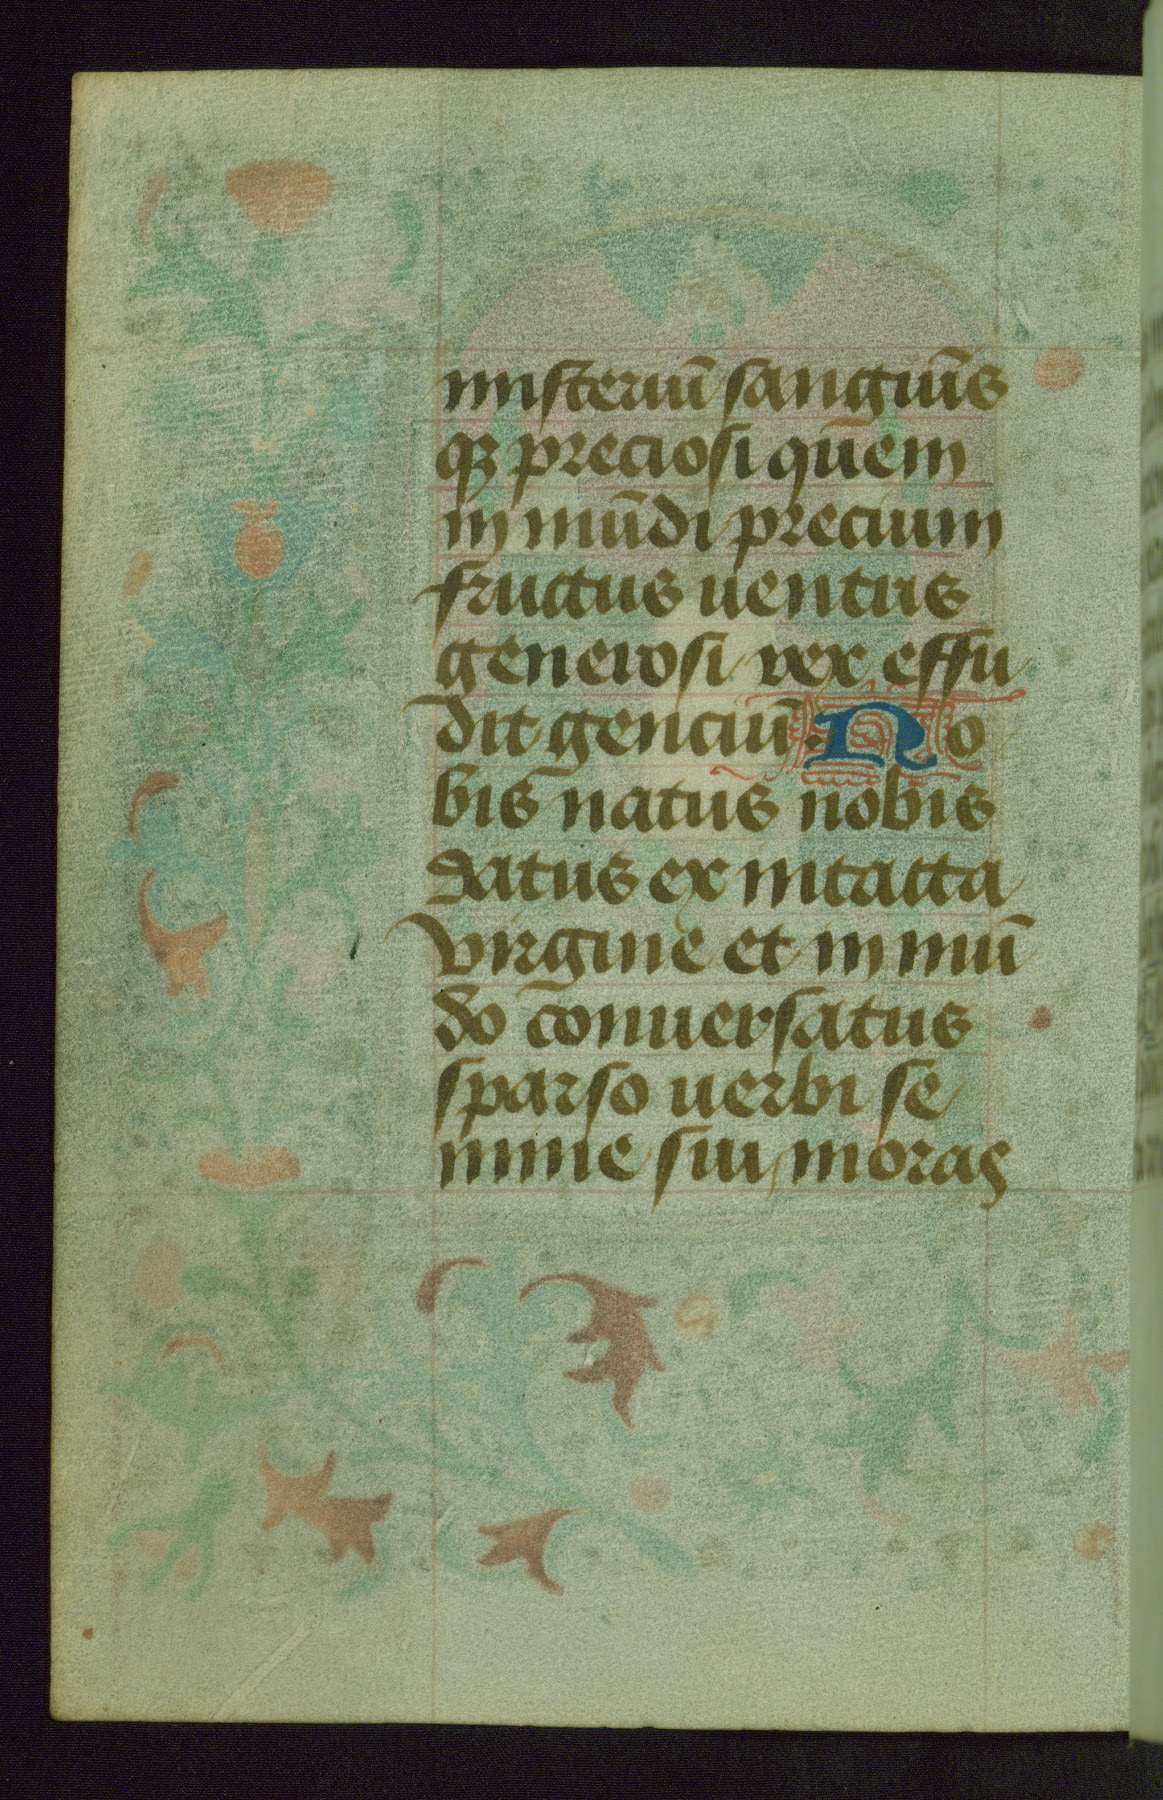 misteriū sanguīs
qꝫ preciosi quem
in mūdi precium
fructus uentris
generosi rex effu
dit genciū. No
bis natus nobis
datus ex intacta
virgine et in mū
do cōnuersatus
sparso uerbi se
mine sui moras